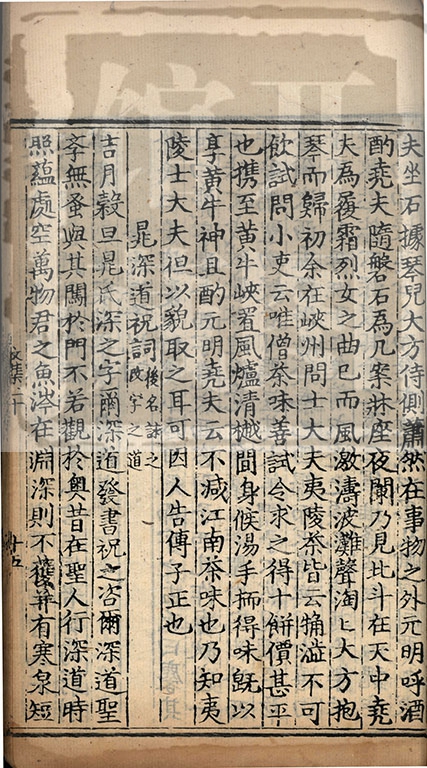 夫坐石據琴兒大方侍側蕭然在事物之外元明呼酒
酌堯夫隨磐石為几案牀座夜闌乃見北斗在天中堯
夫為履霜烈女之曲已而風激濤波灘聲淘〻大方抱
琴而歸初余在峽州問士大夫夷陵茶皆云觕澁不可
飲試問小吏云唯僧茶味善試令求之得十餅價甚平
也携至黃牛峽置風爐清樾間身候湯手抐得味旣以
享黃牛神且酌元明堯夫云不減江南茶味也乃知夷
陵士大夫但以貌取之耳可因人告傳子正也
晁深道祝詞後名詠之改字之道
吉月穀旦晁氏深之字爾深道發書祝之咨爾深道聖
學無蚤與其闖於門不若觀於奧昔在聖人行深道時
照蘊處空萬物君之魚涔在淵深則不獲井有寒泉短
十五